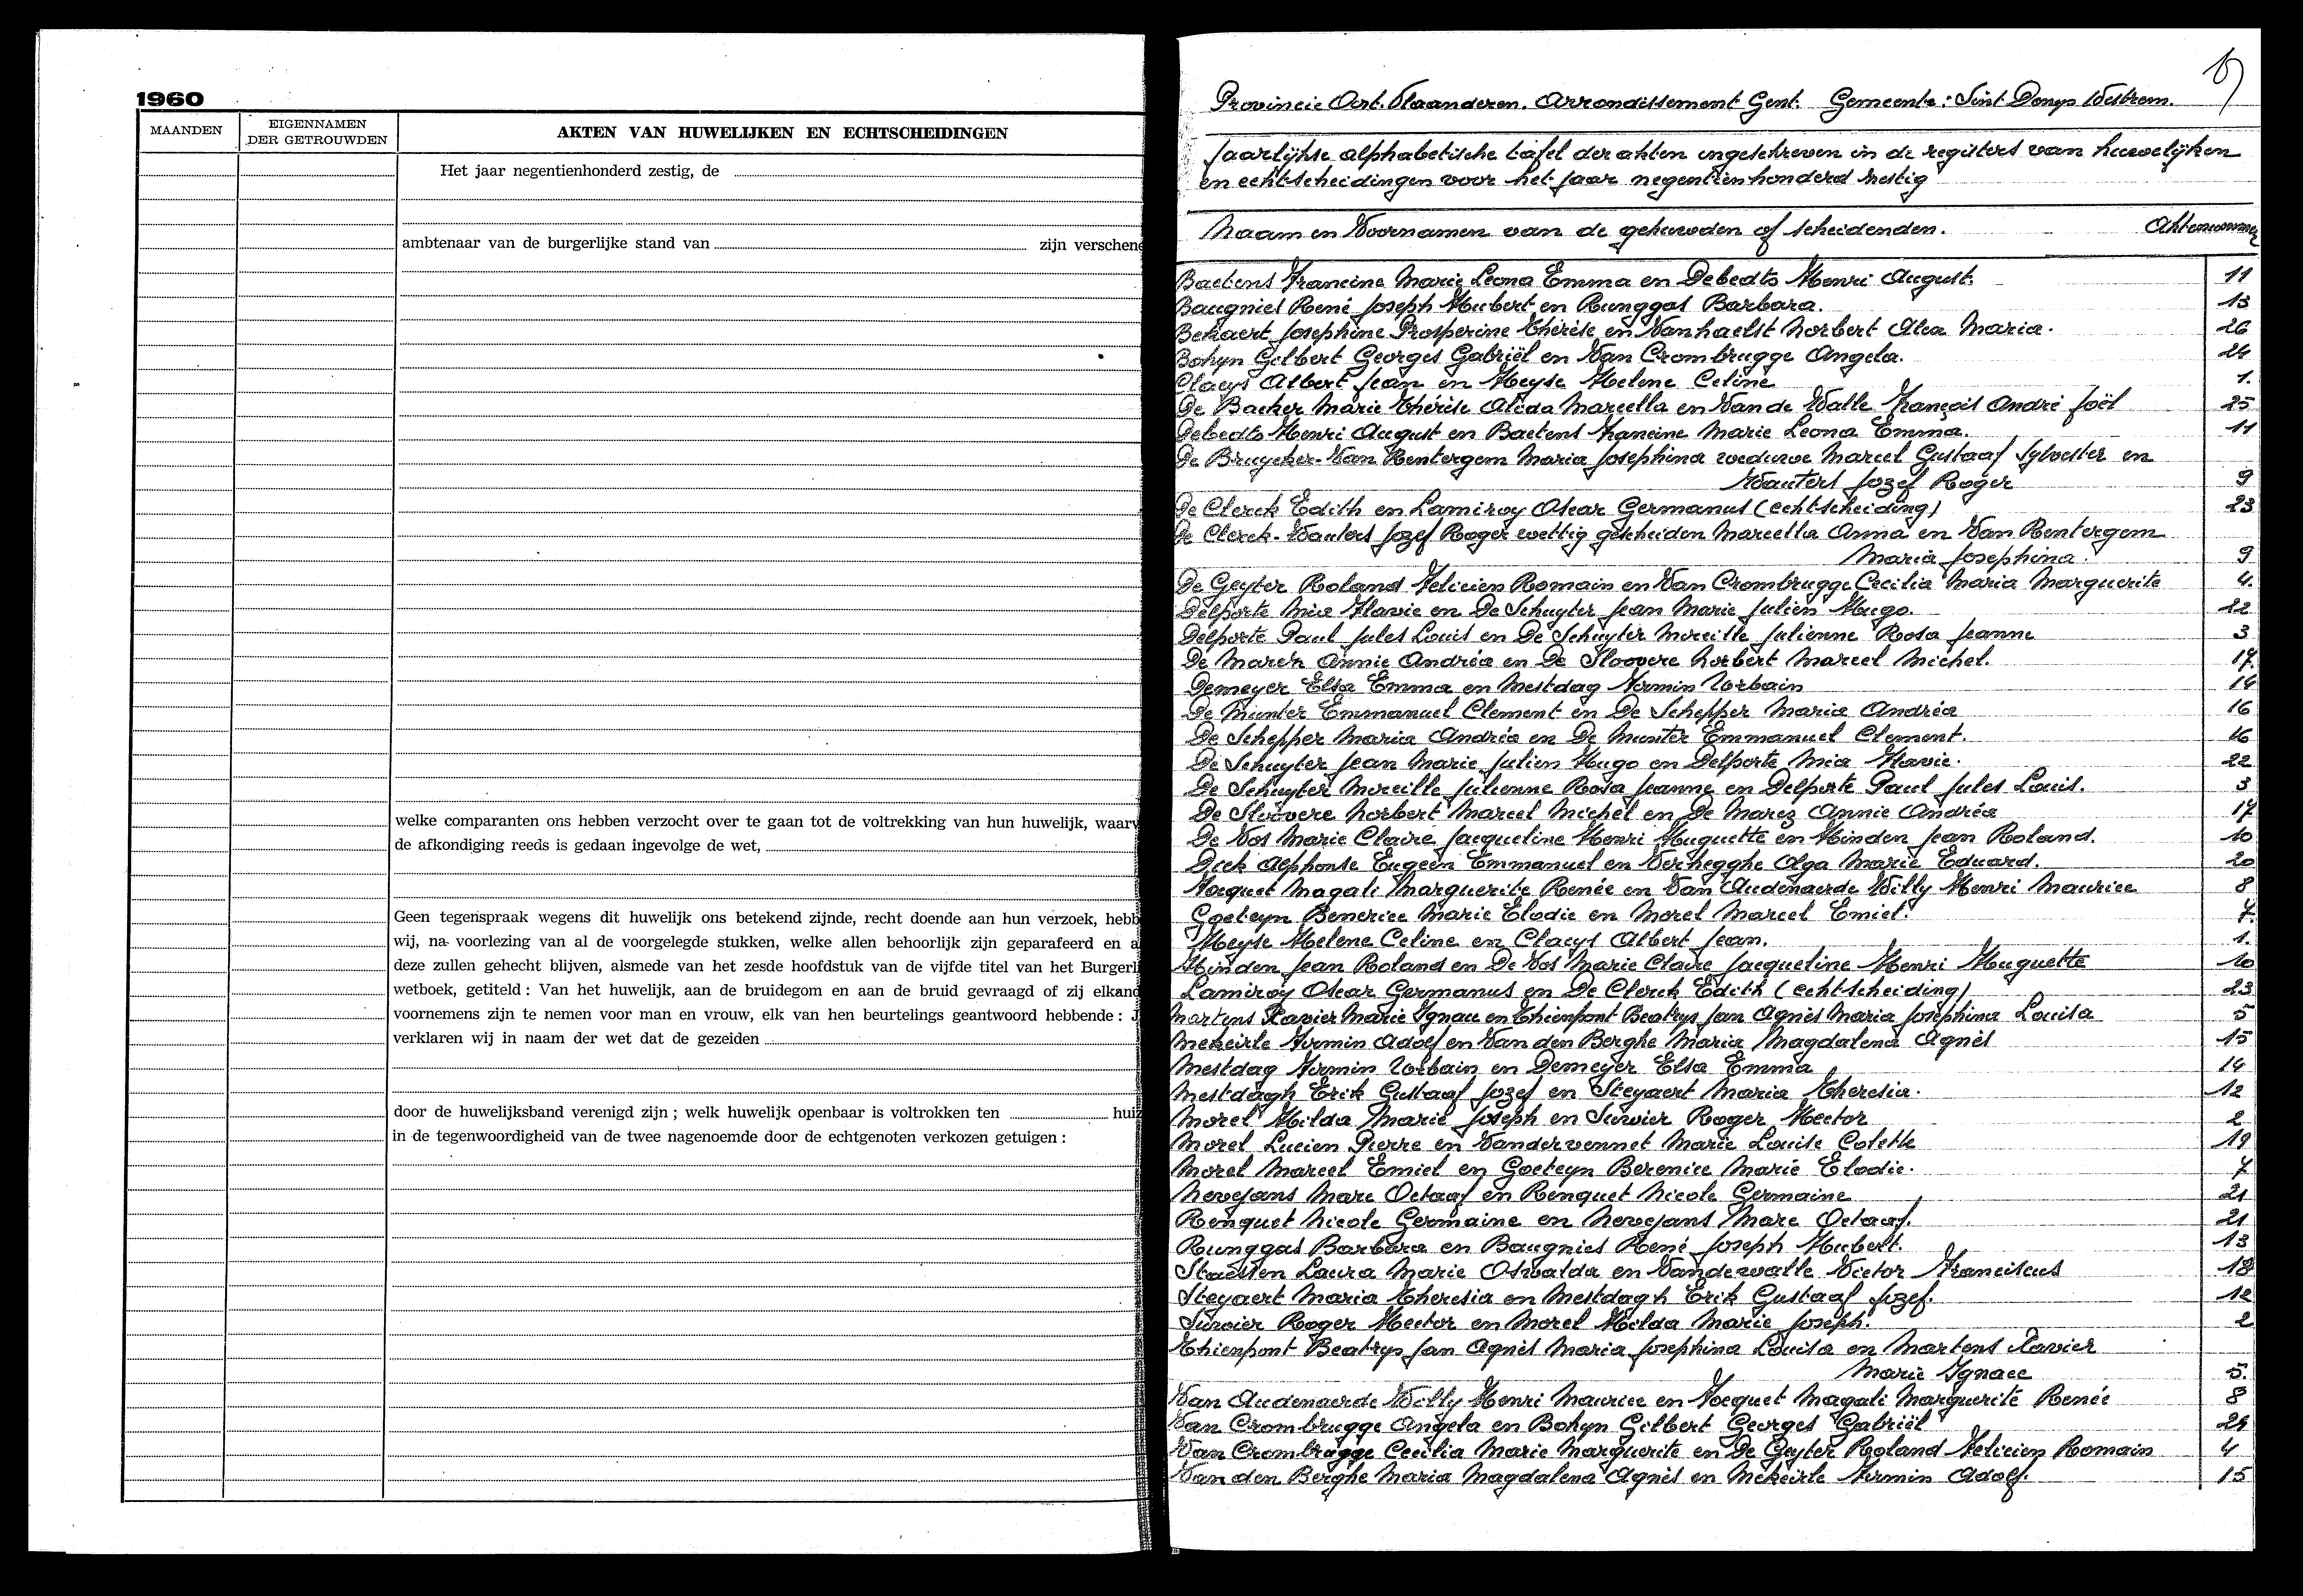 1960
MAANDEN
EIGENNAMEN
DER GETROUWDEN
AKTEN VAN HUWELIJKEN EN ECHTSCHEIDINGEN
Het jaar negentienhonderd zestig, de
ambtenaar van de burgerlijke stand van zijn verschene
welke comparanten ons hebben verzocht over te gaan tot de voltrekking van hun huwelijk, waarv
de afkondiging reeds is gedaan ingevolge de wet,
Geen tegenspraak wegens dit huwelijk ons betekend zijnde, recht doende aan hun verzoek, hebb
wij, na voorlezing van al de voorgelegde stukken, welke allen behoorlijk zijn geparafeerd en a
deze zullen gehecht blijven, alsmede van het zesde hoofdstuk van de vijfde titel van het Burgerli
wetboek, getiteld : Van het huwelijk, aan de bruidegom en aan de bruid gevraagd of zij elkand
voornemens zijn te nemen voor man en vrouw, elk van hen beurtelings geantwoord hebbende : J
verklaren wij in naam der wet dat de gezeiden
door de huwelijksband verenigd zijn ; welk huwelijk openbaar is voltrokken ten huiz
in de tegenwoordigheid van de twee nagenoemde door de echtgenoten verkozen getuigen :
Provincie Oost. Vlaanderen. Arrondissement Gent. Gemeente : Sint Denys Westrem.
Jaarlijkse alphabetische tafel der akten ingeschreven in de registers van huwelijken
en echtscheidingen voor het jaar negentienhonderd zestig
Naam en Voornamen van de gehuwden of scheidenden. Aktenummer
Baetens Francine Marie Leona Emma en Debedts Henri August. 11
Baugnies René Joseph Hubert en Runggas Barbara. 13
Bekaert Josephine Prosperine Thérèse en Vanhaelst Norbert Alex Maria. 26
Bohyn Gilbert Georges Gabriël en Van Crombrugge Angela. 24
Claeys Albert Jean en Heyse Helene Celine 1.
De Backer Marie Thérèse Alida Marcella en Van de Walle François André Joël 25
Debedts Henri August en Baetens Francine Marie Leona Emma. 11
De Bruycker-Van Rentergem Maria Josephina weduwe Marcel Gustaaf Sylvester en
Wauters Jozef Roger 9
De Clerck Edith en Lamiroy Oscar Germanus (echtscheiding) 23
De Clerck-Wauters Jozef Roger wettig gescheiden Marcella Anna en Van Rentergem
Maria Josephina. 9
De Geyter Roland Felicien Romain en Van Crombrugge Cecilia Maria Marguerite 4.
Delporte Mia Flavie en De Schuyter Jean Marie Julien Hugo. 22
Delporte Paul Jules Louis en De Schuyter Mireille Julienne Rosa Jeanne 3
De Marez Annie Andréa en De Sloovere Norbert Marcel Michel. 17.
Demeyer Elsa Emma en Mestdag Firmin Urbain 14
De Munter Emmanuel Clement en De Schepper Maria Andréa 16
De Schepper Maria Andréa en De Munter Emmanuel Clement. 16
De Schuyter Jean Marie Julien Hugo en Delporte Mia Flavie. 22
De Schuyter Mireille Julienne Rosa Jeanne en Delporte Paul Jules Louis. 3
De Sloovere Norbert Marcel Michel en De Marez Annie Andréa 17
De Vos Marie Claire Jacqueline Henri Huguette en Hinden Jean Roland. 10
Dick Alphonse Eugeen Emmanuel en Verhegghe Olga Marie Eduard. 20
Focquet Magali Marguerite Renée en Van Audenaerde Willy Henri Maurice 8
Goeteyn Benerice Marie Elodie en Morel Marcel Emiel. 7.
Heyse Helene Celine en Claeys Albert Jean. 1.
Hinden Jean Roland en De Vos Marie Claire Jacqueline Henri Huguette 10
Lamiroy Oscar Germanus en De Clerck Edith (echtscheiding) 23
Martens Xavier Marie Ignace en Thienpont Beatrys Jan Agnès Maria Josephina Louisa 5
Mekeirle Firmin Adolf en Van den Berghe Maria Magdalena Agnès 15
Mestdag Firmin Urbain en Demeyer Elsa Emma 14
Mestdagh Erik Gustaaf Jozef en Steyaert Maria Theresia. 12
Morel Hilda Marie Joseph en Survier Roger Hector 2
Morel Lucien Pierre en Vandervennet Marie Louise Colette 19
Morel Marcel Emiel en Goeteyn Berenice Marie Elodie. 7
Nevejans Marc Octaaf en Renquet Nicole Germaine 21
Renquet Nicole Germaine en Nevejans Marc Octaaf. 21
Runggas Barbara en Baugnies René Joseph Hubert. 13
Staessen Laura Marie Oswalda en Vandewalle Victor Franciscus 18
Steyaert Maria Theresia en Mestdagh Erik Gustaaf Jozef. 12
Survier Roger Hector en Morel Hilda Marie Joseph. 2
Thienpont Beatrys Jan Agnès Maria Josephina Louisa en Martens Xavier
Marie Ignace 5.
Van Audenaerde Willy Henri Maurice en Focquet Magali Marguerite Renée 8
Van Crombrugge Angela en Bohyn Gilbert Georges Gabriël 24
Van Crombrugge Cecilia Marie Marguerite en De Geyter Roland Felicien Romain 4
Van den Berghe Maria Magdalena Agnès en Mekeirle Firmin Adolf. 15